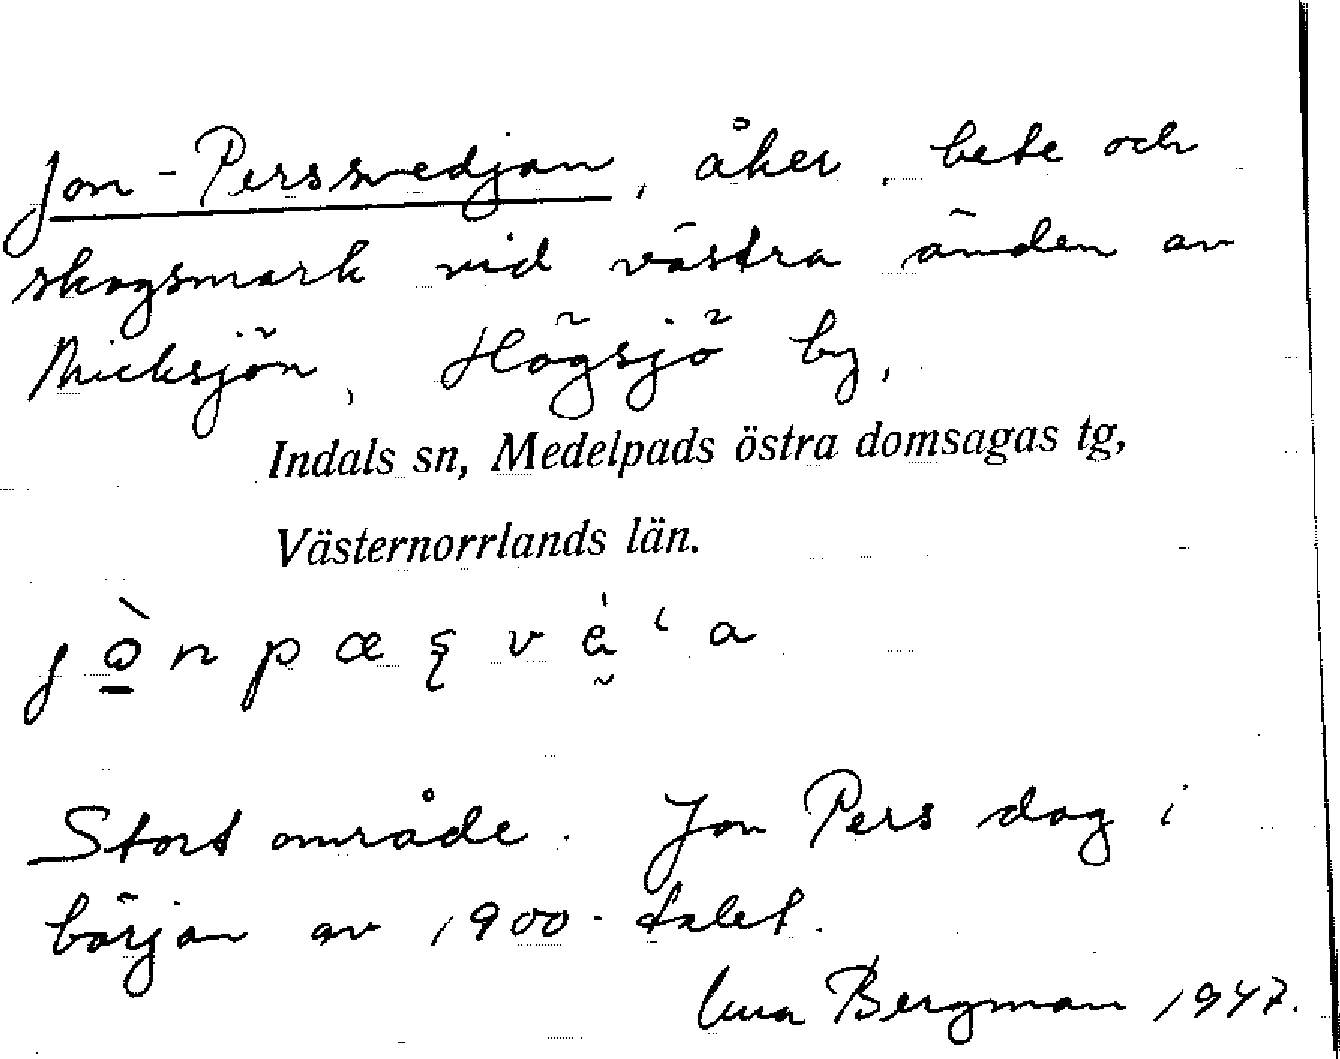 Jon-Perssvedjan, åker, bete och
skogsmark vid västra änden av
Micksjön, Högsjö by,
Indals sn, Medelpads östra domsagas tg,
Västernorrlands län.
Stort område. Jon Pers dog i
början av 1900-talet.
Bergman 1947.